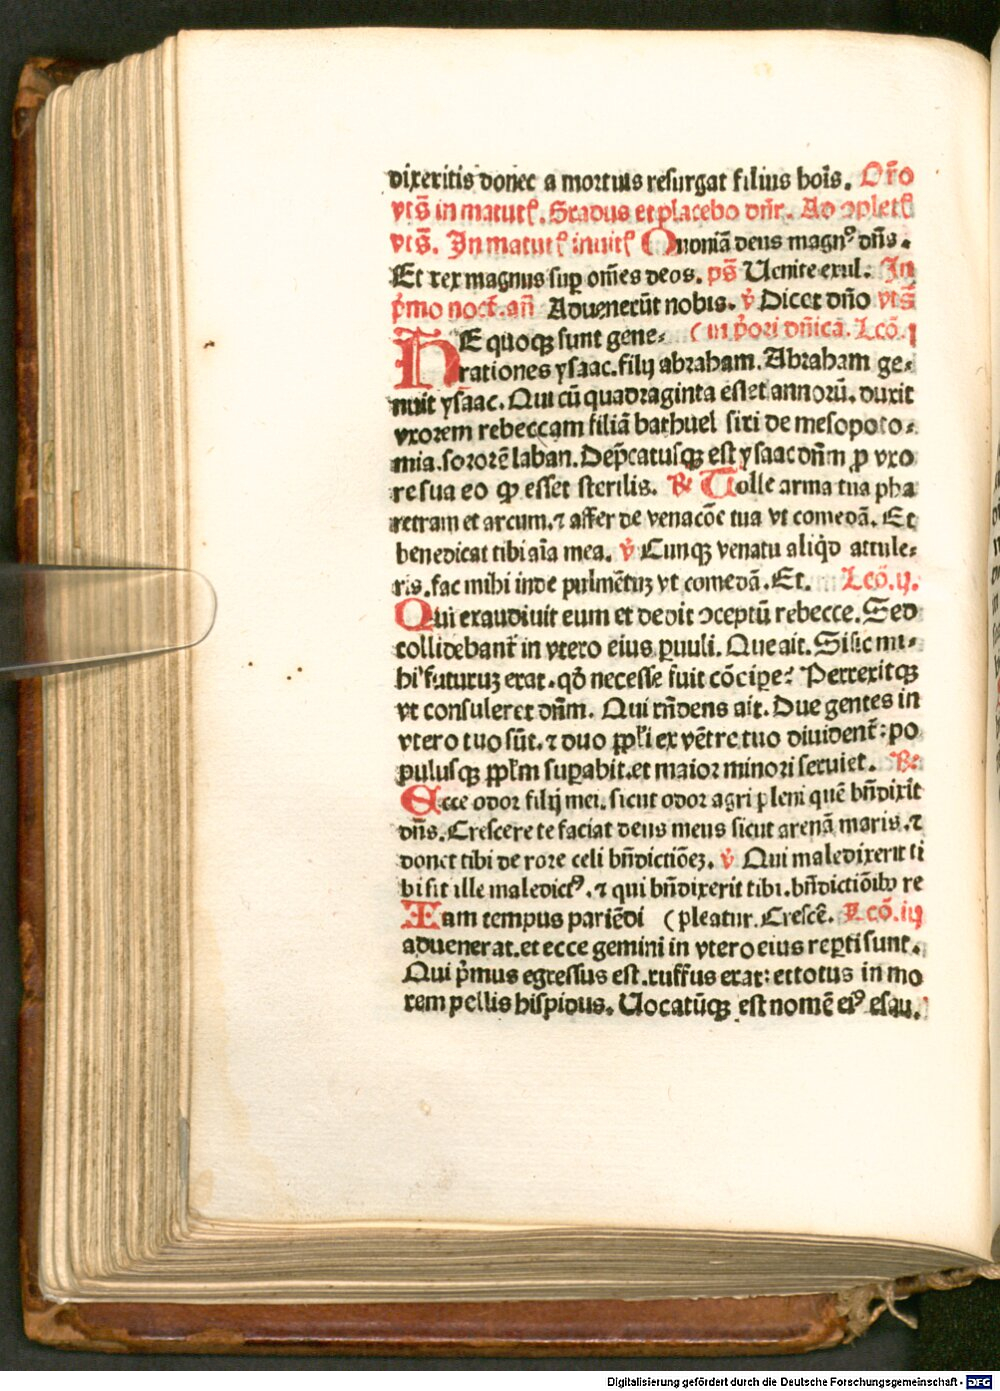 dixeritis donec a mortuis resurgat filius hoīs. Or̄o
vts̄ in matutꝭ. Gradus et placebo dn̄r. Ad ↄpletꝭ
vts̄. In matutꝭ inuitꝭ Quoniā deus magnꝰ dn̄s.
Et rex magnus suꝑ om̄es deos. ps̄ Uenite exul. In
p̄mo noct̄. an̄ Aduenerūt nobis. v̄ Dicet dn̄o vts̄
HE quoqꝫ sunt gene⸗ ( in p̄ori dn̄ica. Lcō. j
rationes ysaac. filij abraham. Abraham ge⸗
nuit ysaac. Qui cū quadraginta esset annorū. duxit
vxorem rebeccam filiā bathuel siri de mesopoto⸗
mia. sororē laban. Dep̄catusqꝫ est ysaac dn̄m ꝓ vxo
re sua eo ꝙ esset sterilis. ℞ Tolle arma tua pha
retram et arcum. ⁊ affer de venacōe tua vt comedā. Et
benedicat tibi aīa mea. v̄ Cunqꝫ venatu aliq̇d attule⸗
ris. fac mihi inde pulmētuꝫ vt comedā. Et. Lcō. ij.
Qui exaudiuit eum et dedit ↄceptū rebecce. Sed
collidebant̄ in vtero eius ꝑuuli. Que ait. Si sic mi⸗
hi futuruꝫ erat. qd̄ necesse fuit cōciꝑe? Perrexitqꝫ
vt consuleret dn̄m. Qui rn̄dens ait. Due gentes in
vtero tuo sūt. ⁊ duo ꝓpl̄i ex vētre tuo diuident̄: po
pulusqꝫ ꝓpl̄m suꝑabit. et maior minori seruiet. ℞
Ecce odor filij mei. sicut odor agri pleni quē bn̄dixit
dn̄s. Crescere te faciat deus meus sicut arenā maris. ⁊
donet tibi de rore celi bn̄dictiōeꝫ. v̄ Qui maledixerit ti
bi sit ille maledictꝰ. ⁊ qui bn̄dixerit tibi. bn̄dictiōibꝫ re
Iam tempus pariēdi ( pleatur. Crescē. Lcō. iij
aduenerat. et ecce gemini in vtero eius reꝑti sunt.
Qui p̄mus egressus est. ruffus erat: et totus in mo
rem pellis hispidus. Uocatūqꝫ est nomē eiꝰ esau.
Digitalisierung gefördert durch die Deutsche Forschungsgemeinschaft - DFG